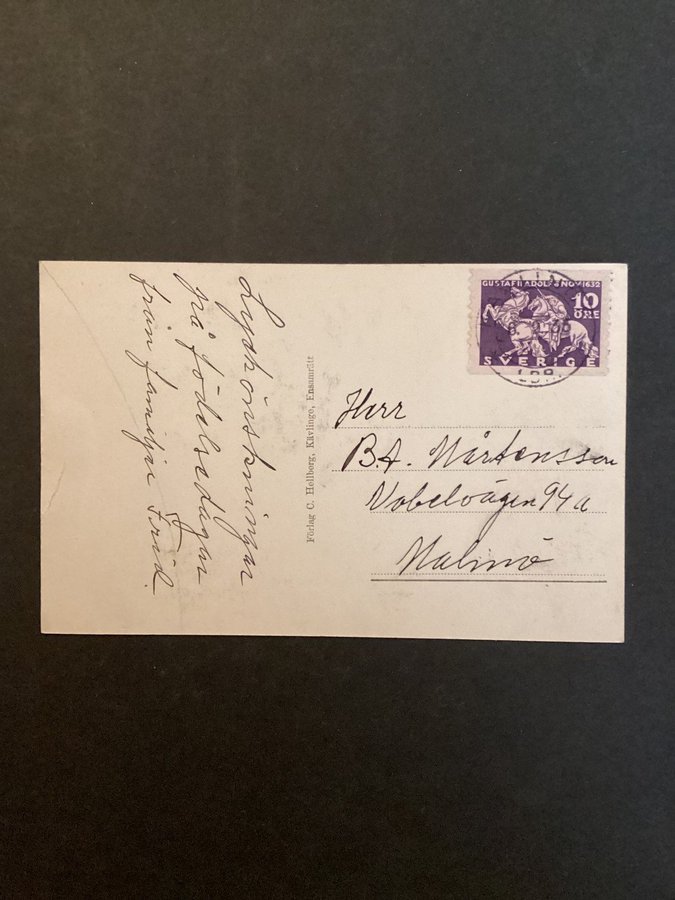 Lyckönskningar
på födelsedagen
från familjen Frid.
Förlag C. Hellborg, Kävlinge, Ensamrätt
GUSTAF II ADOLF 6 NOV. 1632
10
ÖRE
SVERIGE
LBR
Herr
B.A. Mårtensson
Nobelvägen 94 a
Malmö